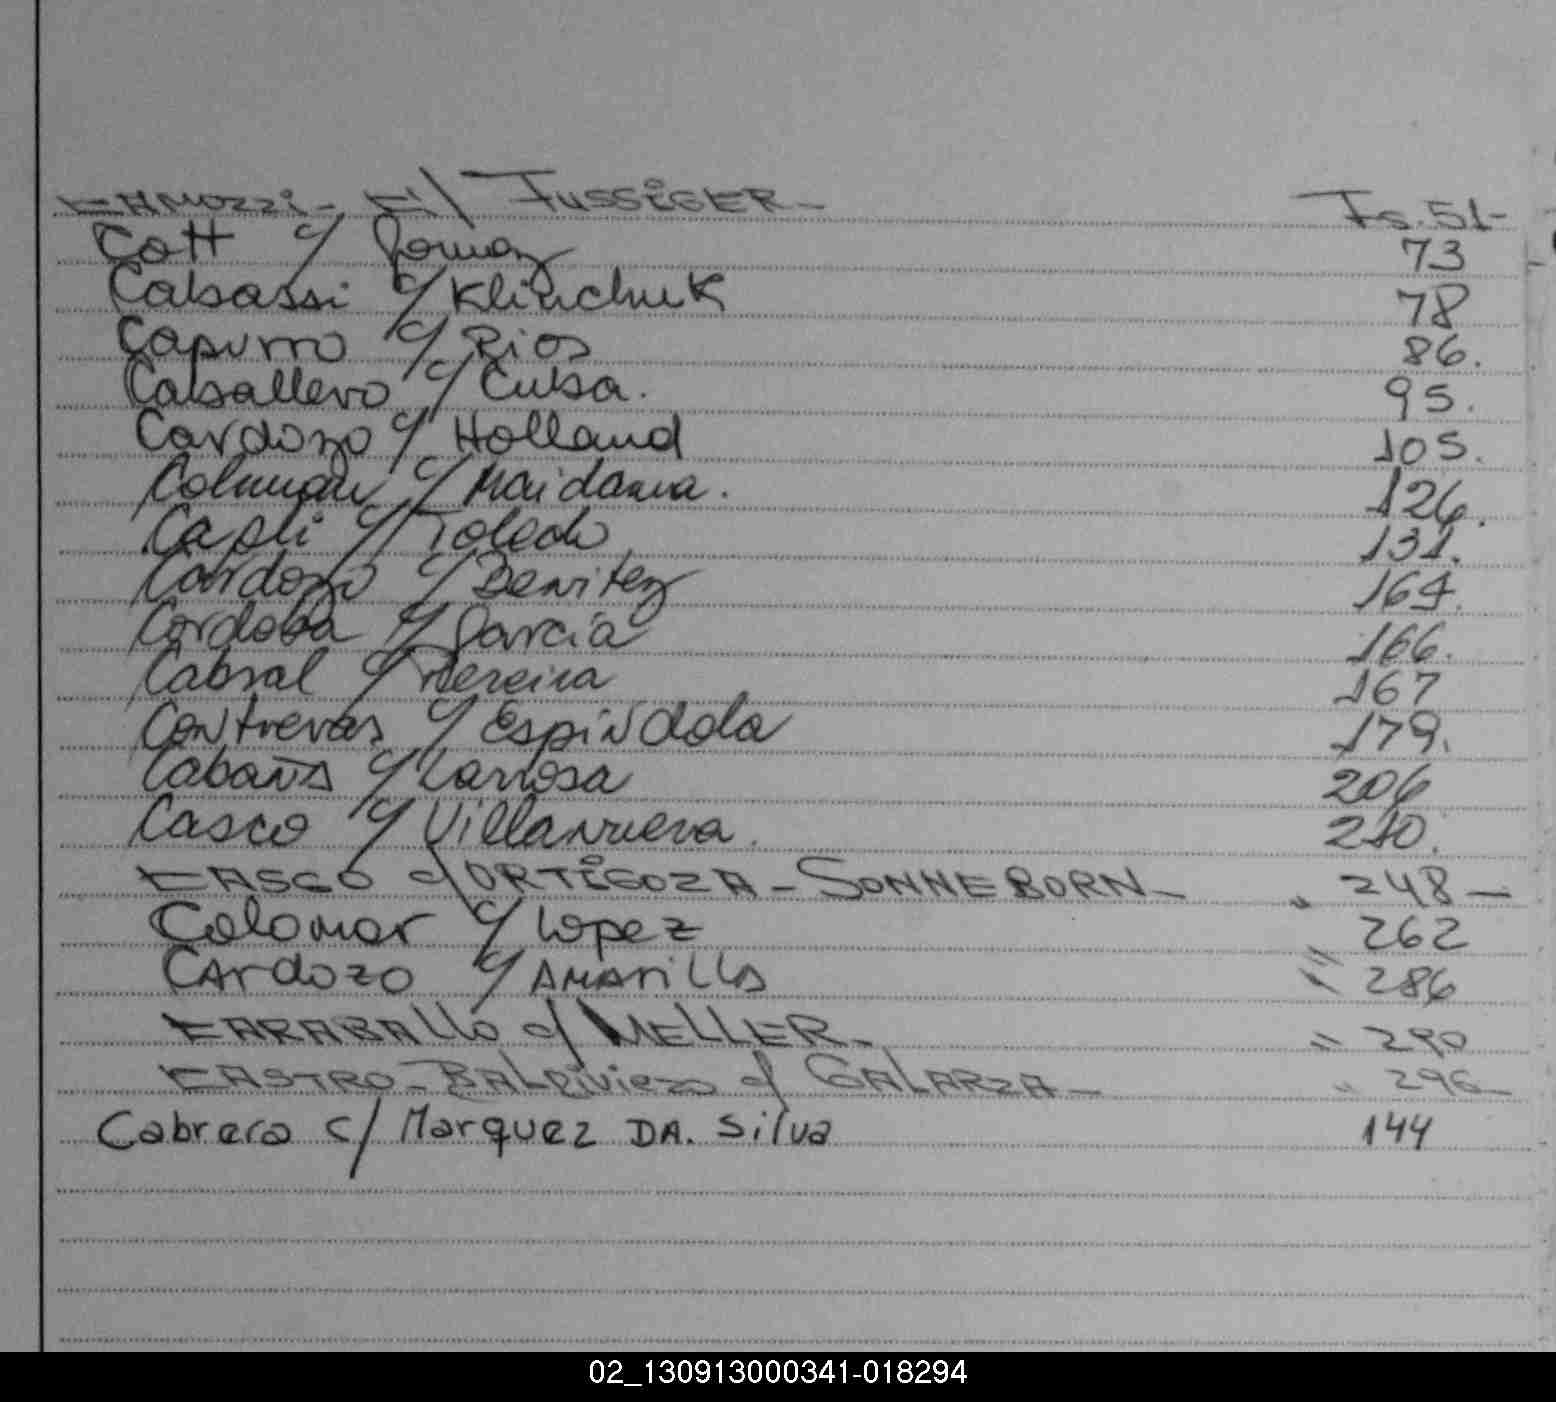 CANUZZI - C/ FUSSIGER - Fs. 51 -
Cott c/ Gomez 73
Cabassi c/ Klinchuk 78
Capurro c/ Rios 86.
Caballero c/ Cuba. 95.
Cardozo c/ Holland 105.
Colman c/ Maidana. 126.
Capli c/ Toledo 131.
Cardozo c/ Benitez 164.
Cordoba c/ Garcia 166.
Cabral c/ Pereira 167
Contreras c/ Espindola 179.
Cabaña c/ Larrosa 206
Casco c/ Villanueva. 210.
CASCO c/ ORTIGOZA - SONNEBORN - " 248 -
Colomar c/ Lopez " 262
CArdozo c/ AMArillA " 286
CARABAllo c/ MELLER - " 290
CASTRO - BALDiViezo c/ GALARZA - " 296 -
Cabrera c/ Marquez DA. Silva 144
02_130913000341-018294